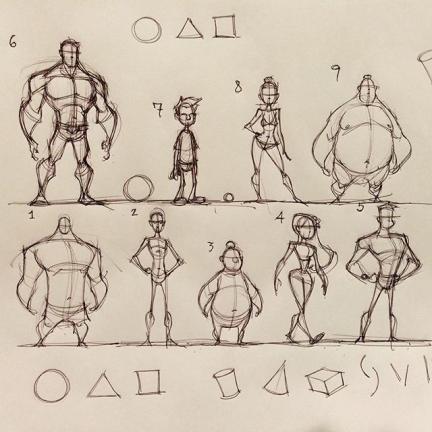 6
7
8
9
1
2
3
4
5